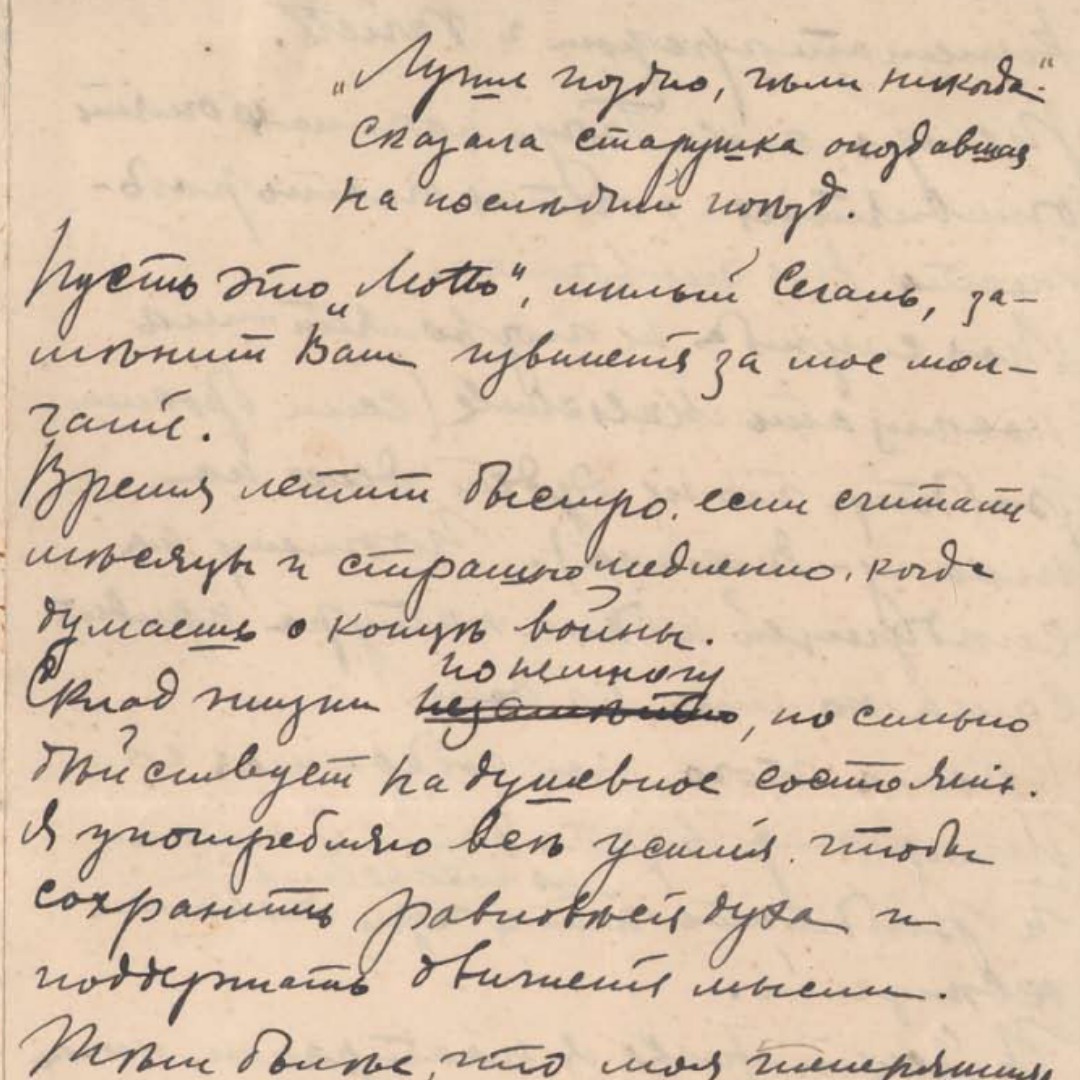 „Лучше поздно, чѣмъ никогда“
сказала старушка опоздавшая
на послѣднiй поѣздъ.
Пусть это „Motto“, милый Сегалъ, за-
мѣнитъ Вамъ извиненiя за мое мол-
чанiе.
Время летитъ быстро, если считать
мѣсяцы и страшно медленно, когда
думаешь о концѣ войны.
Складъ жизни
понемногу
незамѣтно, но сильно
дѣйствуетъ на душевное состоянiе.
Я употребляю всѣ усилiя, чтобы
сохранить равновѣсiя духа и
поддержать движенiя мысли.
Тѣмъ болѣе, что моя теперешняя